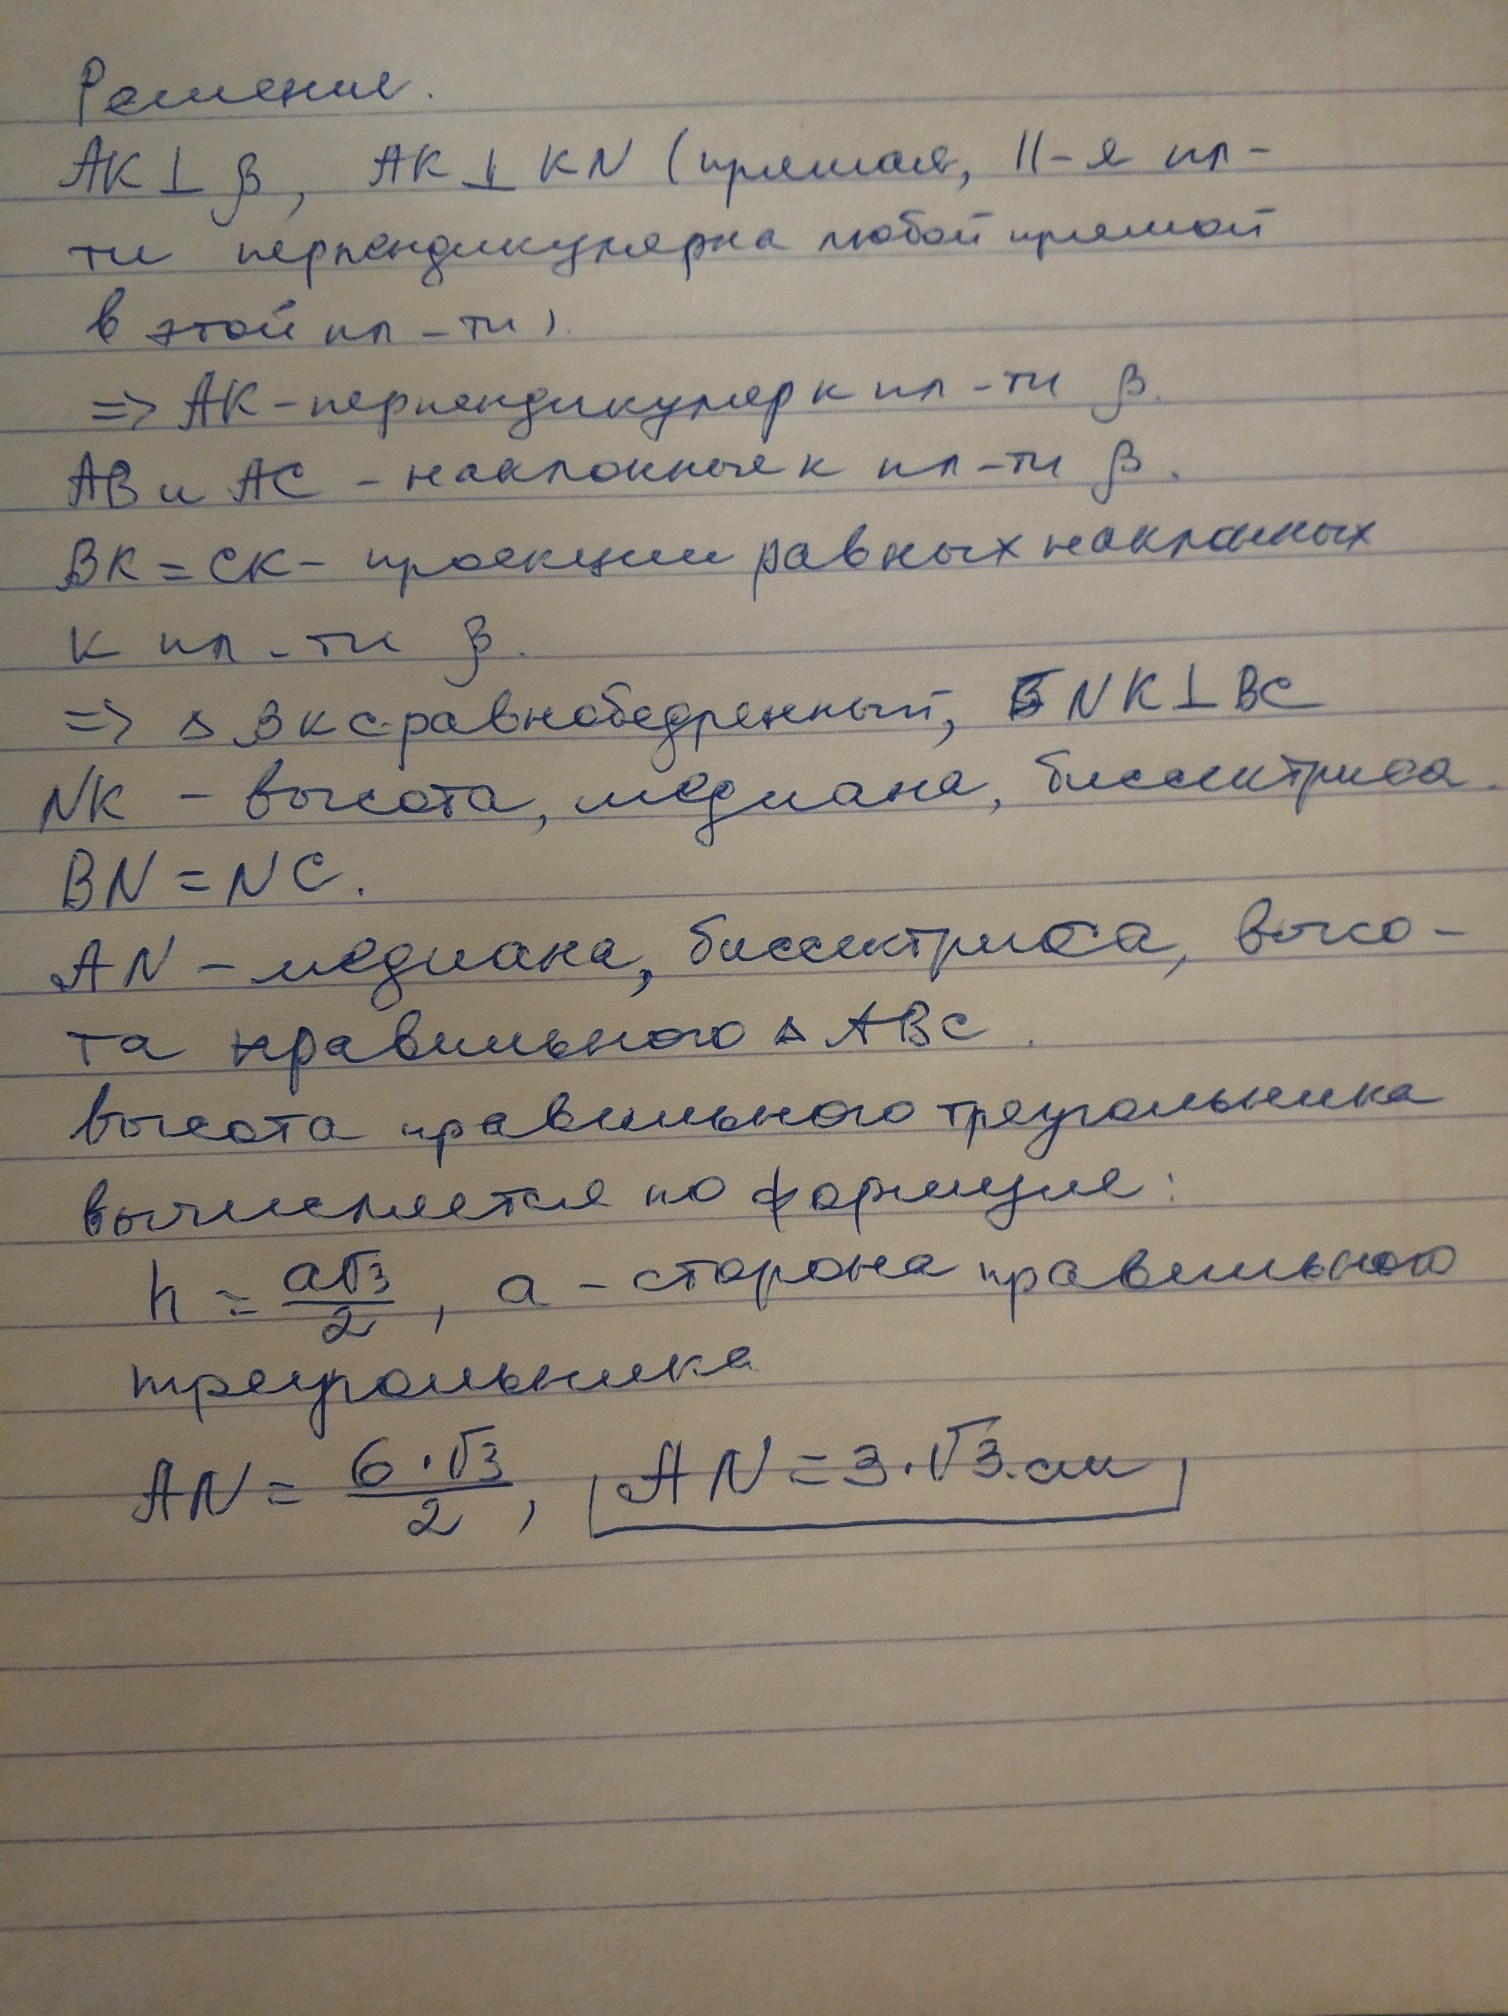 Решение.
АК⊥β, АК⊥КN (прямая, ||-я пл-
ти перпендикулярна любой прямой
в этой пл-ти).
=> АК-перпендикуляр к пл-ти β.
АВ и АС - наклонные к пл-ти β.
ВК=СК- проекции равных наклонных
к пл-ти β.
=> △ ВКС-равнобедренный, NK⊥BC
NK - высота, медиана, биссектриса.
BN=NC.
AN - медиана, биссектриса, высо-
та правильного △ АВС.
высота правильного треугольника
вычисляется по формуле:
h = a√3/2, a - сторона правильного
треугольника
AN = 6·√3/2, AN=3·√3 см